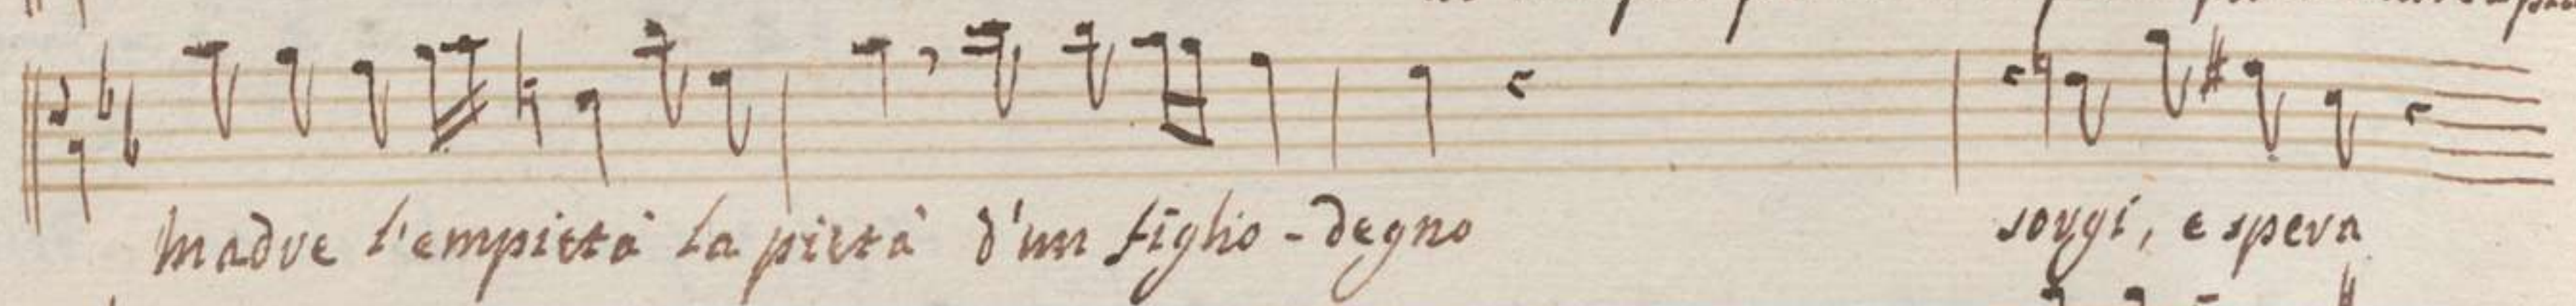 madre l'empietà la pietà d'un figlio-degno sorgi, e spera